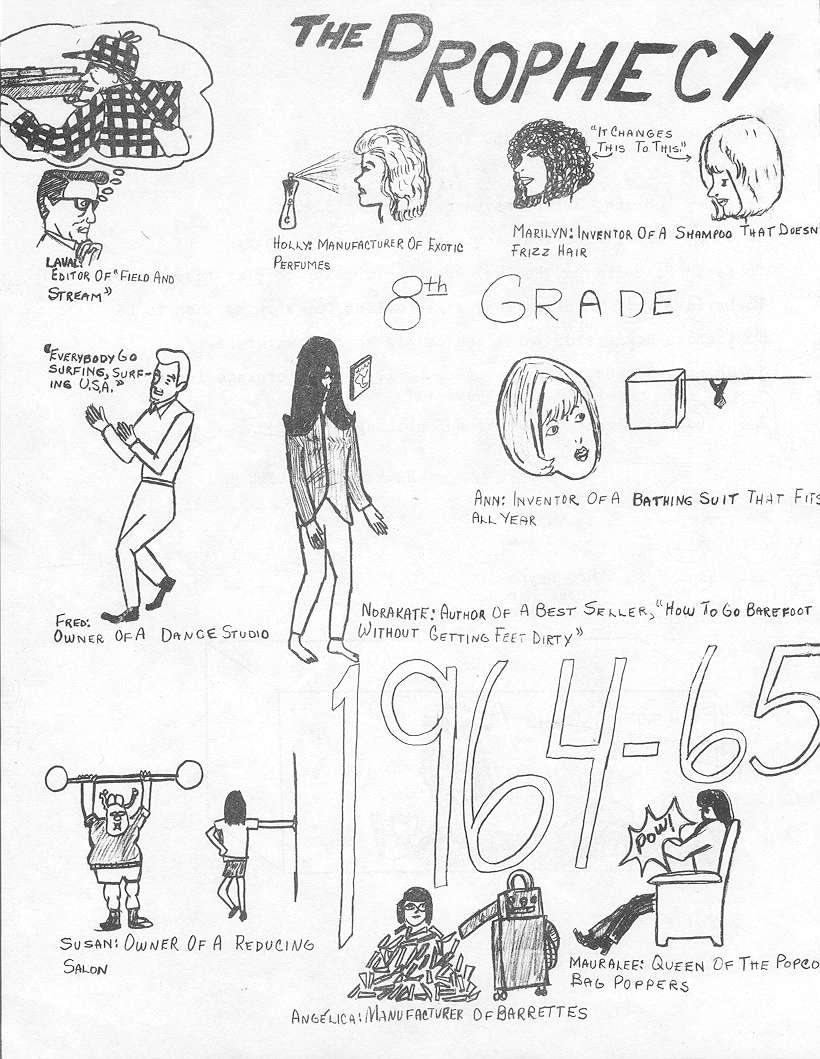 THE PROPHECY
"IT CHANGES
THIS TO THIS."
HOLLY: MANUFACTURER OF EXOTIC
PERFUMES
MARILYN: INVENTOR OF A SHAMPOO THAT DOESN'
FRIZZ HAIR
LAVAL:
EDITOR OF "FIELD AND
STREAM"
8th GRADE
"EVERYBODY GO
SURFING, SURF-
ING U.S.A."
ANN: INVENTOR OF A BATHING SUIT THAT FITS
ALL YEAR
FRED:
OWNER OF A DANCE STUDIO
NORAKATE: AUTHOR OF A BEST SELLER, "HOW TO GO BAREFOOT
WITHOUT GETTING FEET DIRTY"
1964-65
POW!
SUSAN: OWNER OF A REDUCING
SALON
MAURALEE: QUEEN OF THE POPCO
BAG POPPERS
ANGÉLICA: MANUFACTURER OF BARRETTES